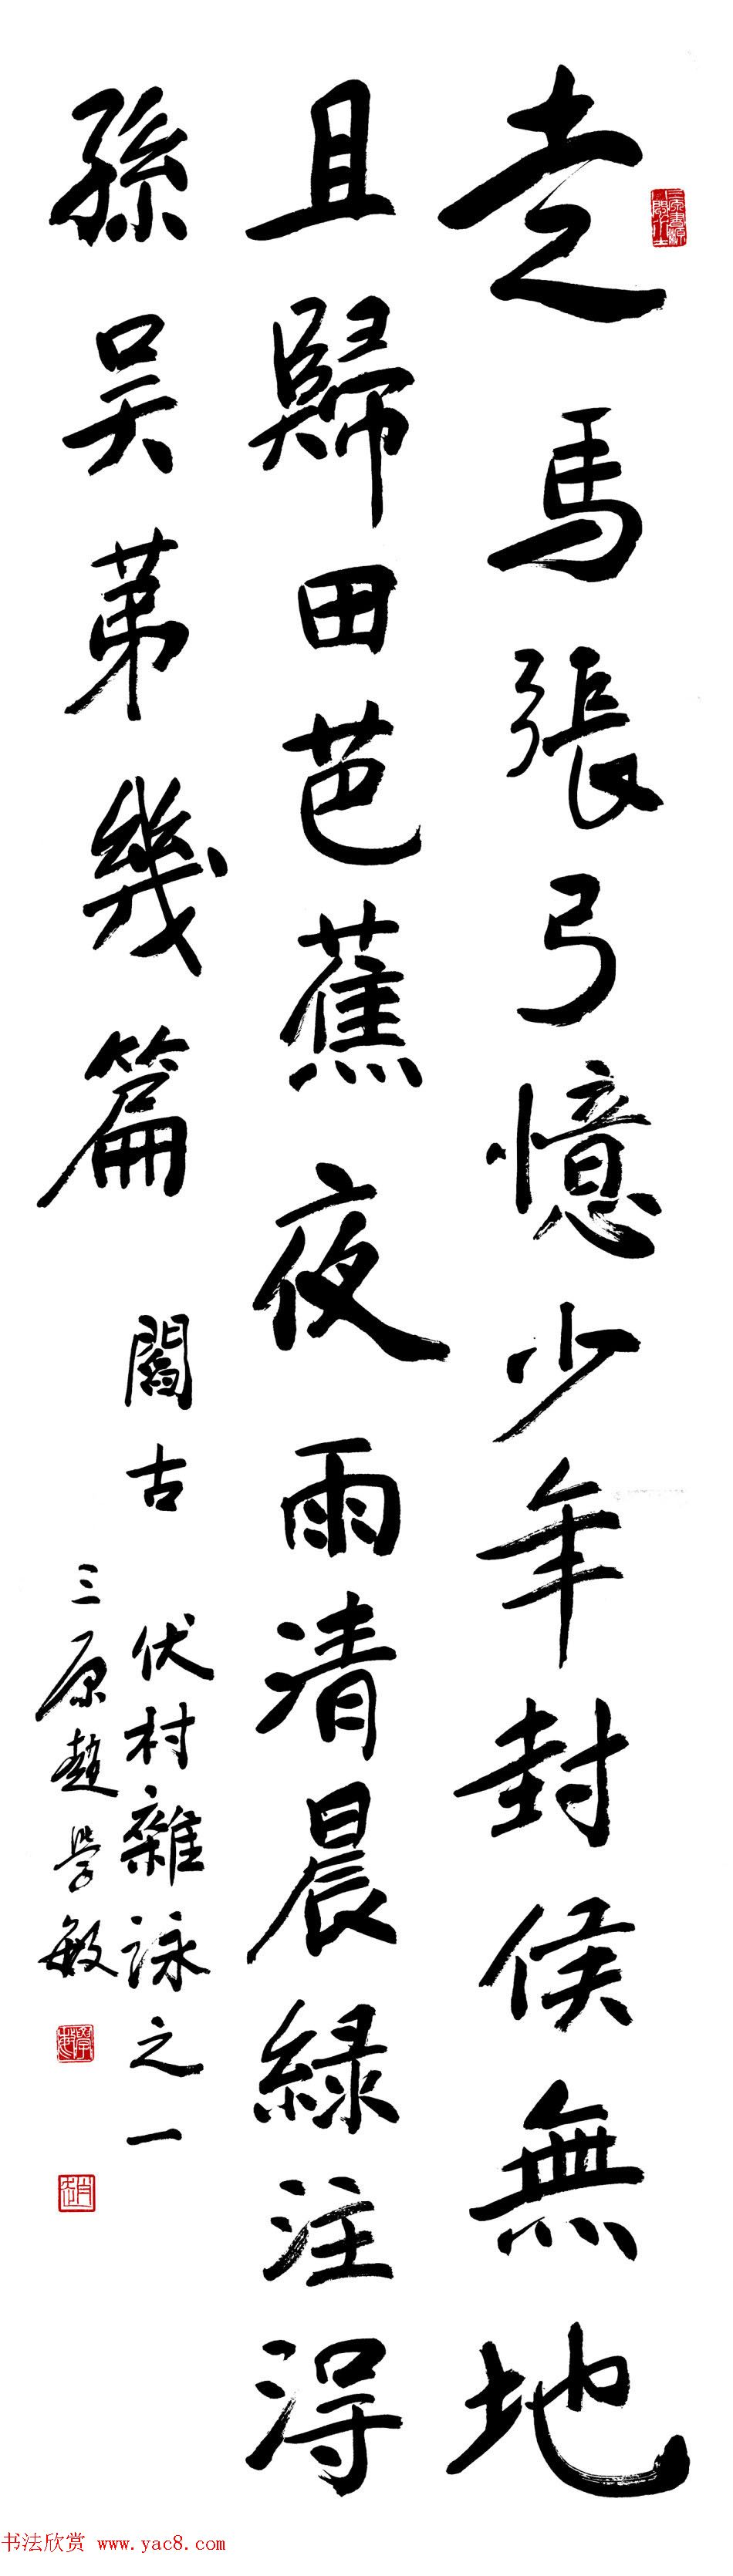 走馬張弓憶少年封侯無地
且歸田芭蕉夜雨清晨綠注得
孫吳苐幾篇
閻古
伏村雜詠之一
三原趙學敏
书法欣赏 www.yac8.com